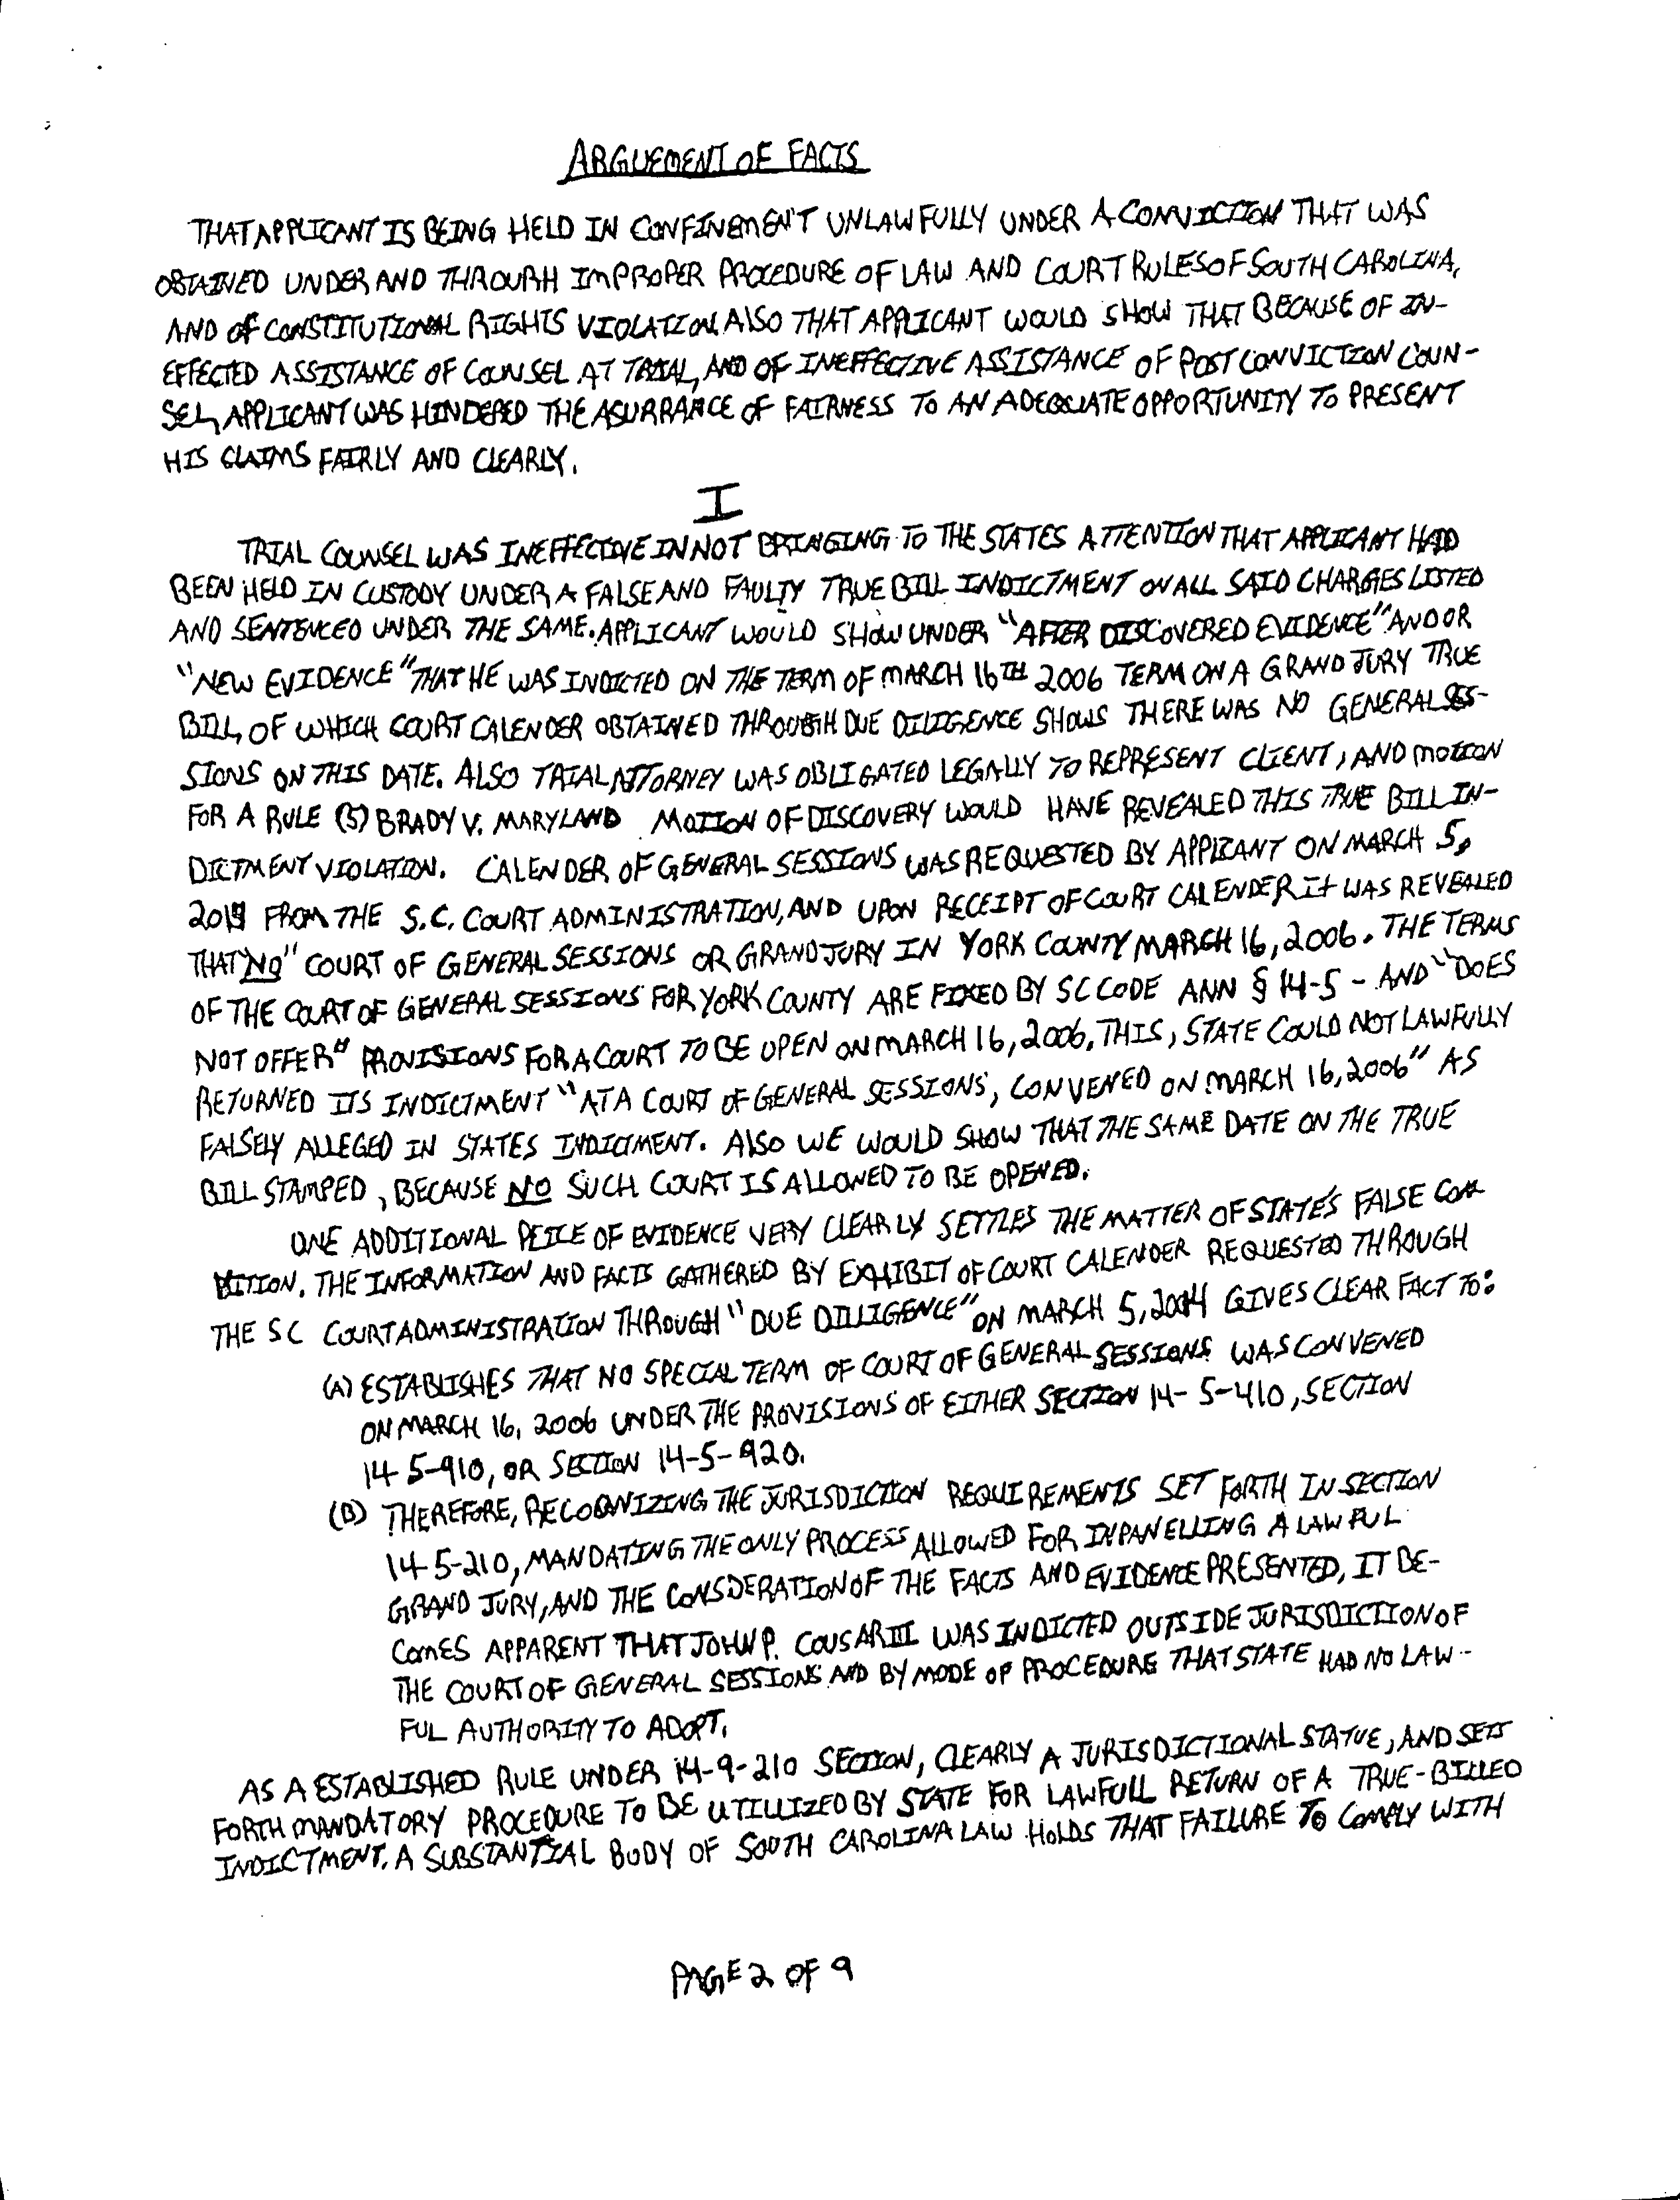 ARGUEMENT OF FACTS
THAT APPLICANT IS BEING HELD IN CONFINEMENT UNLAWFULLY UNDER A CONVICTION THAT WAS
OBTAINED UNDER AND THROUGH IMPROPER PROCEDURE OF LAW AND COURT RULES OF SOUTH CAROLINA,
AND OF CONSTITUTIONAL RIGHTS VIOLATION. ALSO THAT APPLICANT WOULD SHOW THAT BECAUSE OF IN-
EFFECTED ASSISTANCE OF COUNSEL AT TRIAL, AND OF INEFFECTIVE ASSISTANCE OF POST CONVICTION COUN-
SEL, APPLICANT WAS HINDERED THE ASURRANCE OF FAIRNESS TO AN ADEQUATE OPPORTUNITY TO PRESENT
HIS CLAIMS FAIRLY AND CLEARLY.
I
TRIAL COUNSEL WAS INEFFECTIVE IN NOT BRINGING TO THE STATES ATTENTION THAT APPLICANT HAD
BEEN HELD IN CUSTODY UNDER A FALSE AND FAULTY TRUE BILL INDICTMENT ON ALL SAID CHARGES LISTED
AND SENTENCED UNDER THE SAME. APPLICANT WOULD SHOW UNDER "AFTER DISCOVERED EVIDENCE" AND OR
"NEW EVIDENCE" THAT HE WAS INDICTED ON THE TERM OF MARCH 16TH 2006 TERM ON A GRAND JURY TRUE
BILL, OF WHICH COURT CALENDER OBTAINED THROUGH DUE DILIGENCE SHOWS THERE WAS NO GENERAL SES-
SIONS ON THIS DATE. ALSO TRIAL ATTORNEY WAS OBLIGATED LEGALLY TO REPRESENT CLIENT, AND MOTION
FOR A RULE (5) BRADY V. MARYLAND MOTION OF DISCOVERY WOULD HAVE REVEALED THIS TRUE BILL IN-
DICTMENT VIOLATION. CALENDER OF GENERAL SESSIONS WAS REQUESTED BY APPLIZANT ON MARCH 5,
FROM THE S.C. COURT ADMINISTRATION, AND UPON RECEIPT OF COURT CALENDER It WAS REVEALED
THAT "NO" COURT OF GENERAL SESSIONS OR GRAND JURY IN YORK COUNTY MARCH 16, 2006. THE TERMS
OF THE COURT OF GENERAL SESSIONS FOR YORK COUNTY ARE FIXED BY SC CODE ANN § 14-5 - AND "DOES
NOT OFFER" PROVISIONS FOR A COURT TO BE OPEN ON MARCH 16, 2006. THIS, STATE COULD NOT LAWFULLY
RETURNED ITS INDICTMENT "AT A COURT OF GENERAL SESSIONS, CONVENED ON MARCH 16, 2006" AS
FALSELY ALLEGED IN STATES INDICTMENT. ALSO WE WOULD SHOW THAT THE SAME DATE ON THE TRUE
BILL STAMPED, BECAUSE NO SUCH COURT IS ALLOWED TO BE OPENED.
ONE ADDITIONAL PEICE OF EVIDENCE VERY CLEARLY SETTLES THE MATTER OF STATE'S FALSE CON-
DITION. THE INFORMATION AND FACTS GATHERED BY EXHIBIT OF COURT CALENDER REQUESTED THROUGH
THE SC COURT ADMINISTRATION THROUGH "DUE DILLIGENCE" ON MARCH 5, 2014 GIVES CLEAR FACT TO:
(A) ESTABLISHES THAT NO SPECIAL TERM OF COURT OF GENERAL SESSIONS WAS CONVENED
ON MARCH 16, 2006 UNDER THE PROVISIONS OF EITHER SECTION 14-5-410, SECTION
14-5-910, OR SECTION 14-5-920.
(B) THEREFORE, RECOGNIZING THE JURISDICTION REQUIREMENTS SET FORTH IN SECTION
14-5-210, MANDATING THE ONLY PROCESS ALLOWED FOR INPANELLING A LAWFUL
GRAND JURY, AND THE CONSDERATION OF THE FACTS AND EVIDENCE PRESENTED, IT BE-
COMES APPARENT THAT JOHN P. COUSAR III WAS INDICTED OUTSIDE JURISDICTION OF
THE COURT OF GENERAL SESSIONS AND BY MODE OF PROCEDURE THAT STATE HAD NO LAW-
FUL AUTHORITY TO ADOPT.
AS A ESTABLISHED RULE UNDER 14-9-210 SECTION, CLEARLY A JURISDICTIONAL STATUE, AND SETS
FORTH MANDATORY PROCEDURE TO BE UTILLIZED BY STATE FOR LAWFULL RETURN OF A TRUE-BILLED
INDICTMENT. A SUBSTANTIAL BODY OF SOUTH CAROLINA LAW HOLDS THAT FAILURE TO COMPLY WITH
PAGE 2 OF 9